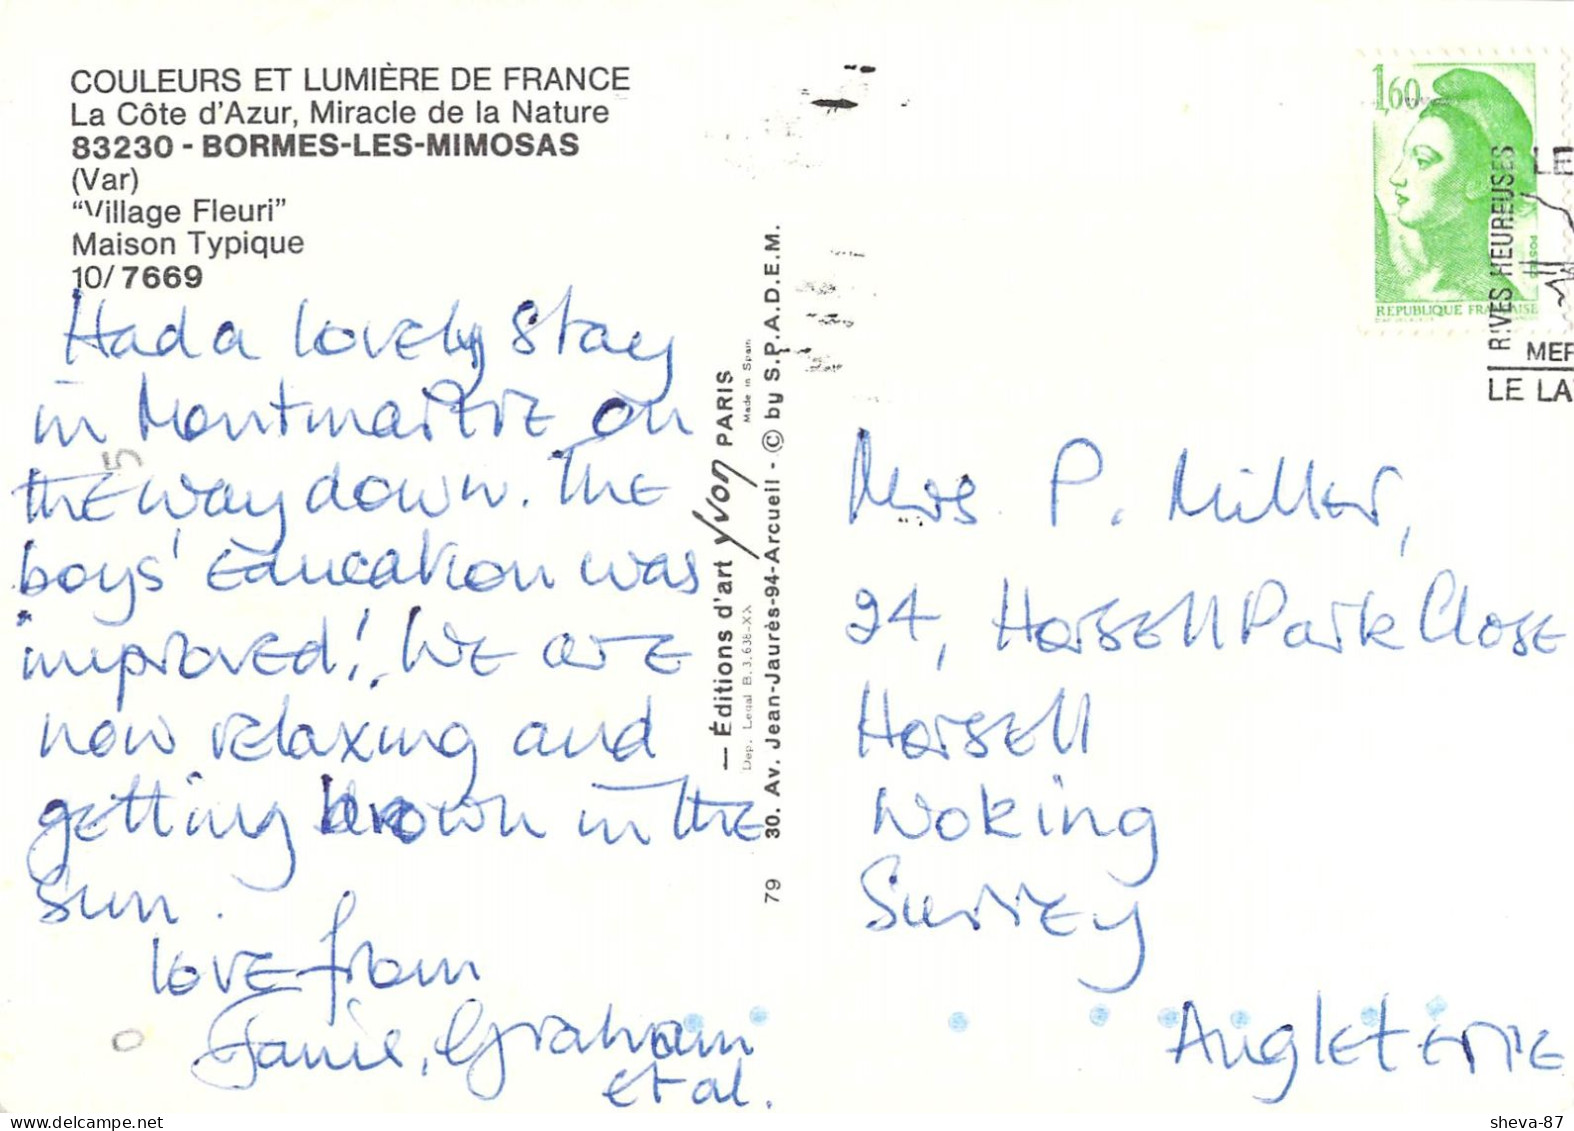 COULEURS ET LUMIÈRE DE FRANCE
La Côte d'Azur, Miracle de la Nature
83230 - BORMES-LES-MIMOSAS
(Var)
"Village Fleuri"
Maison Typique
10/7669
Had a lovely stay
in Montmartre on
the way down. The
boys' education was
improved! We are
now relaxing and
getting brown in the
sun.
love from
Janie, Graham
et al.
5
— Éditions d'art Yvon PARIS
Made in Spain
Dep. Legal B. 3.638-XX
30. Av. Jean-Jaurès-94-Arcueil - © by S.P.A.D.E.M.
79
1,60
REPUBLIQUE FRANÇAISE
RIVES HEUREUSES
LE
MER
LE LA
Mrs P. Miller,
24, Horsell Park Close
Horsell
Woking
Surrey
Angleterre
sheva-87